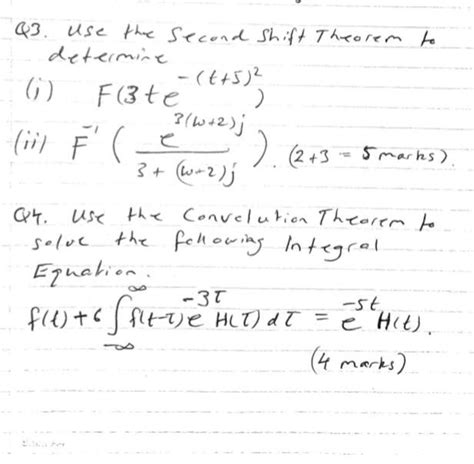 Q3. Use the Second Shift Theorem to
determine
(i) F(3te^{-(t+5)^2})
(ii) F^{-1}(e^{3(w+2)j} / 3+(w-2)j). (2+3 = 5 marks).
Q4. Use the Convolution Theorem to
solve the following Integral
Equation.
f(t)+6∫_{-∞}^{∞} f(t-τ)e^{-3τ} H(τ)dτ = e^{-5t} H(t).
(4 marks)